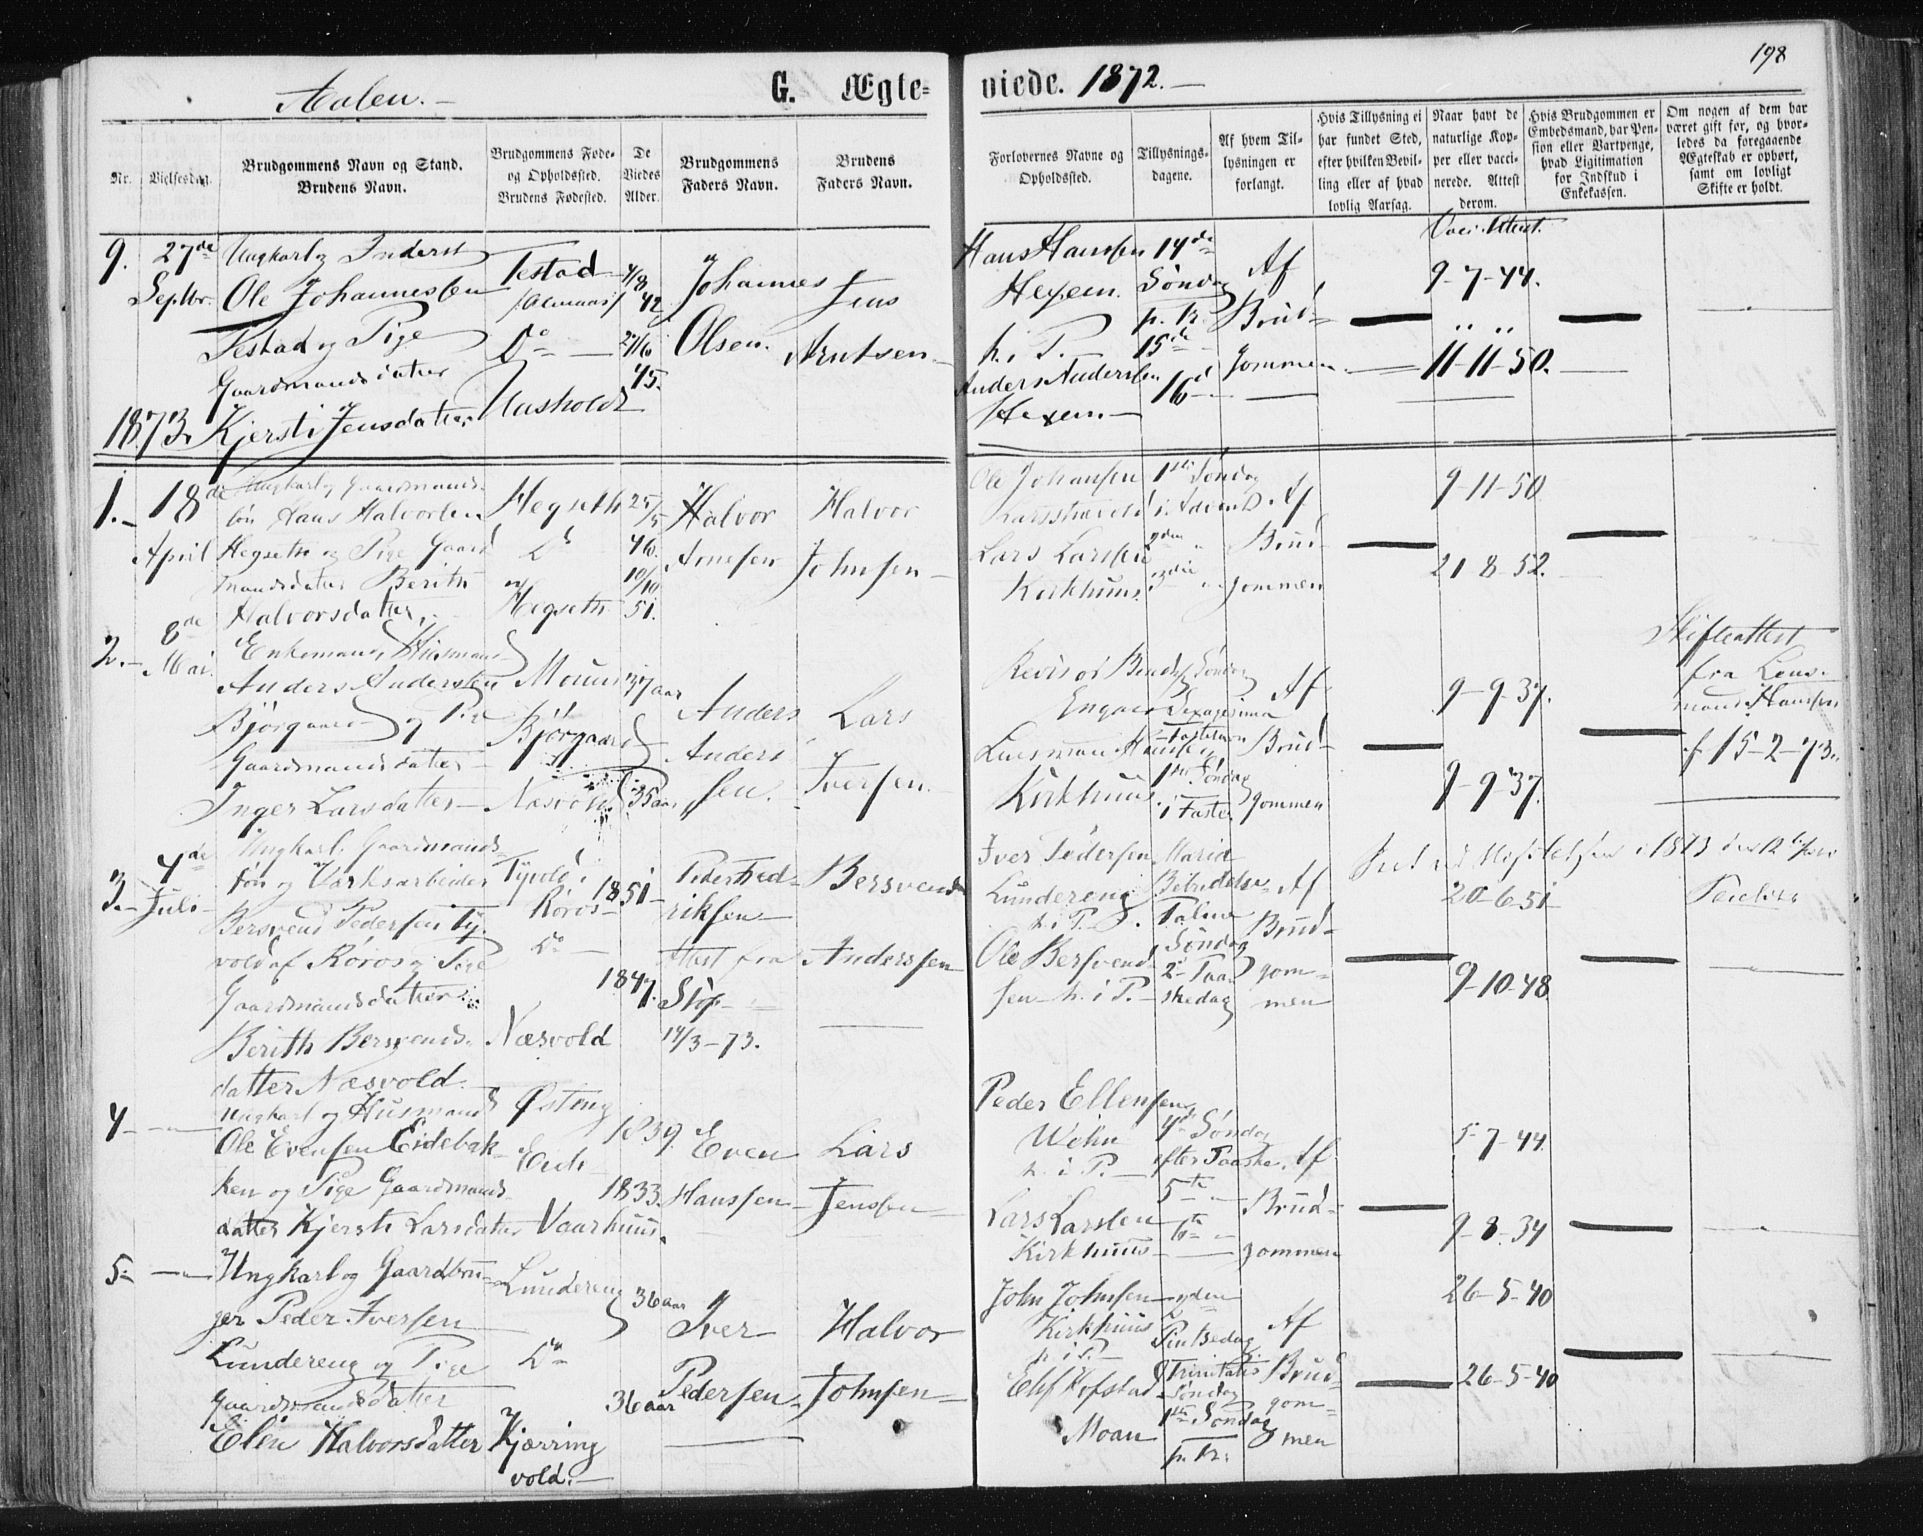 198
Aalen.
G. Ægteviede. 1872.
Nr.
Vielsesdag.
Brudgommens Navn og Stand.
Brudens Navn.
Brudgommens Føde-
og Opholdssted.
Brudens Fødested.
De
Viedes
Alder.
Brudgommens
Faders Navn.
Brudens
Faders Navn.
Forlovernes Navne og
Opholdssted.
Tillysnings-
dagene.
Af hvem Til-
lysningen er
forlangt.
Hvis Tillysning ei
har fundet Sted,
efter hvilken Bevil-
ling eller af hvad
lovlig Aarsag.
Naar havt de
naturlige Kop-
per eller vacci-
nerede. Attest
derom.
Hvis Brudgommen er
Embedsmand, har Pen-
sion eller Vartpenge,
hvad Ligitimation
for Indskud i
Enkekassen.
Om nogen af dem har
været gift før, og hvor-
ledes da foregaaende
Ægteskab er ophørt,
samt om lovligt
Skifte er holdt.
9.
27de
Septbr.
Ungkarl og Inderst
Ole Johannessen
Testad og Pige
Gaardmandsdatter
Kjersti Jensdatter
Testad
Do
Aasholdt
4/8
42
45.
Johannes
Olsen.
Jens
Arntsen
Hans Hanssen
Hexem.
h. i P.
Anders Anderssen
Hexem.
14de
Søndag
p. Tr.
15de
16d
Af
Brud-
gommen.
Vacc. Attest.
9-7-44.
11-11-50.
1873.
1.
18de
April
Ungkarl og Gaardmands-
søn Hans Halvorsen
Hegseth og Pige Gaard
mandsdatter Berith
Halvorsdatter,
Hegseth
Do
Hegseth
25/5
46.
10/10
51.
Halvor
Arnesen
Halvor
Johnsen
Ole Johansen
Lars Larssen
Kirkhuus.
1ste Søndag
i Advent
2den
3die
Af
Brud-
gommen
9-11-50
21-8-52.
2.
8de
Mai.
Enkemand, Husmand
Anders Anderssen
Bjørgaard og Pige
Gaardmandsdatter
Inger Larsdatter
Bjørgaard
Næsvold
37 aar
35 aar
Anders
Anders
sen.
Lars
Iversen.
Revisor Bendt
Engan
Lensmand Hanssen
Kirkhuus
Søndag
Sexagesima
Fastelavn
1ste Søndag
i Faste
Af
Brud-
gommen
9-9-37.
9-9-37.
Skifteattest
fra Lens-
mand Hanssen
f 15-2-73.
3.
4de
Juli
Ungkarl Gaardmands-
søn og Værksarbeider
Bersvend Pedersen Ty-
vold af Røros og Pige
Gaardmandsdatter
Berith Bersvends-
datter Næsvold.
Tyvold i
Røros
Do
Næsvold
1851
1847.
Peder Fred-
riksen
Attest fra
14/3-73.
Bersvend
Anderssen
Iver Pedersen
Lundereng
h. i P.
Ole Bersvend-
sen h. i P.
Maria
Bebudelse
Palme
Søndag
2 Paa-
skedag
Af
Brud-
gom-
men
20-6-51
9-10-48
4
Ungkarl og Husmand
Ole Evensen Eidebak-
ken og Pige Gaardmands-
datter Kjersti Larsdatter
Østeng
Vaarhuus.
1839.
1833.
Even
Hanssen
Lars
Jenssen
Peder Ellensen
h. i P.
Lars Larssen
Kirkhuus
4de Søndag
efter Paaske.
5te
6te
Af
Brud-
gommen
5-7-44.
9-8-34
5
Ungkarl og Gaardbru-
ger Peder Iversen
Lundereng og Pige
Gaardmandsdatter
Elen Halvorsdatter
Lundereng
Do
Kjærring
vold.
36 aar
36 aar
Iver
Pedersen
Halvor
Johnsen
John Johnsen
Kirkhuus
h. i P.
Moan
2den
Pintsedag
Trinitatis
Søndag
1ste Søndag
p. Tr.
Af
Brud-
gom-
men
26-5-40
26-5-40